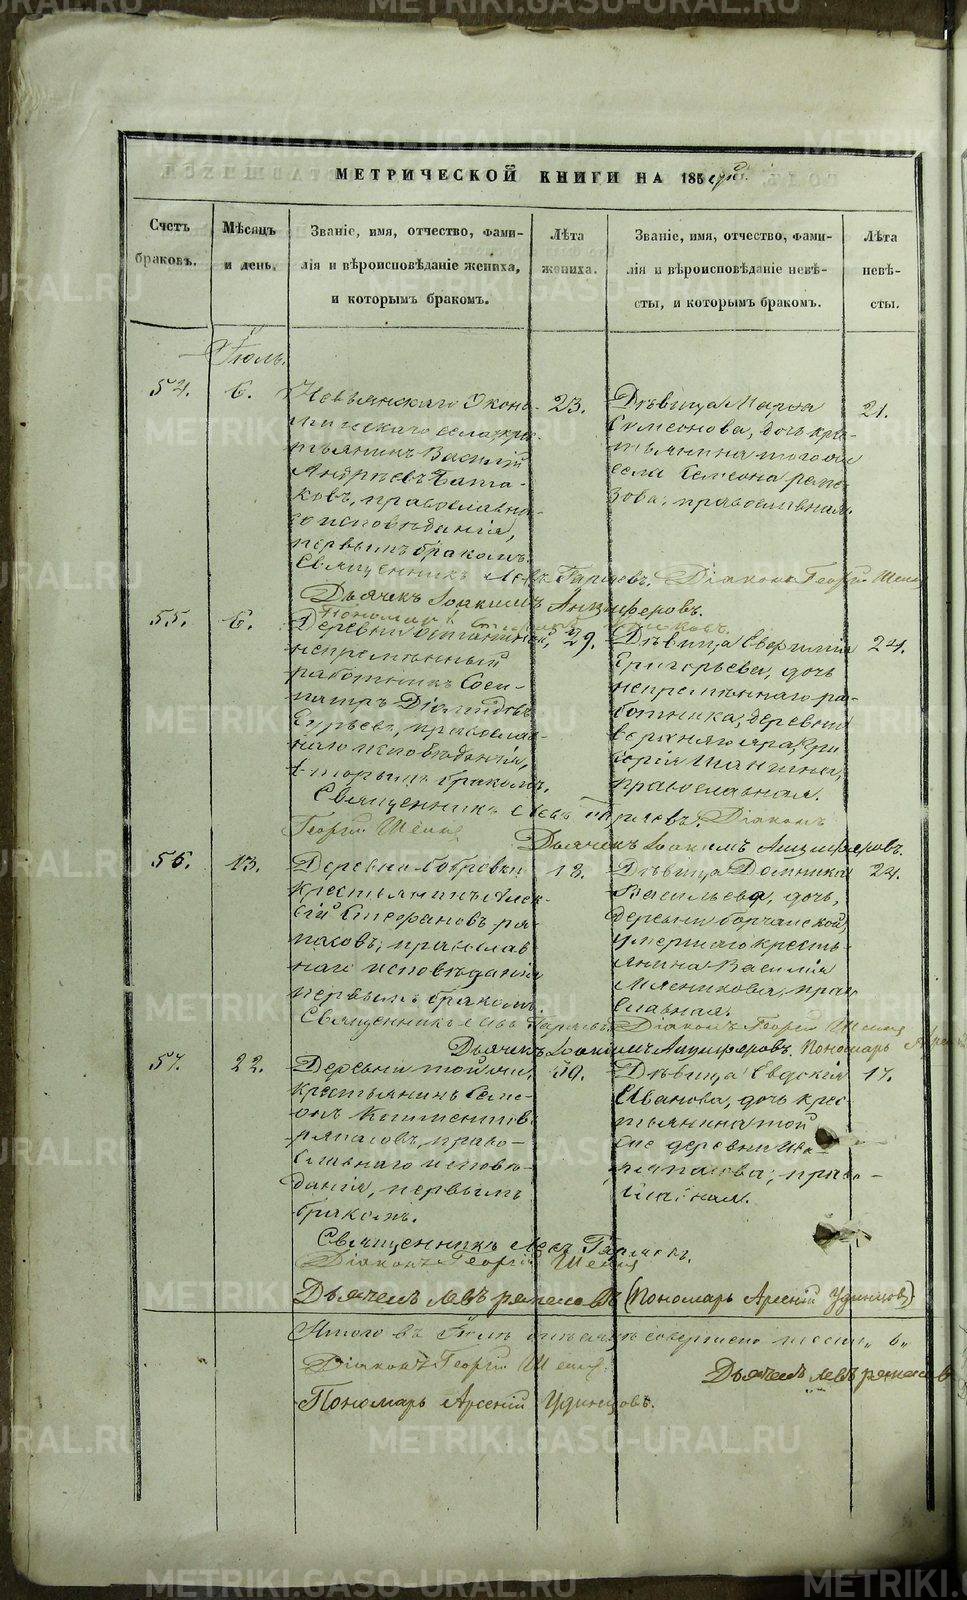 МЕТРИЧЕСКОЙ КНИГИ НА 185
Счетъ браковъ.
Мѣсяцъ и день.
Званіе, имя, отчество, фами-
лія и вѣроисповѣданіе жениха,
и которымъ бракомъ.
Лѣта жениха.
Званіе, имя, отчество, фами-
лія и вѣроисповѣданіе невѣ-
сты, и которымъ бракомъ.
Лѣта невѣ-
сты.
Іюль.
54.
6.
Невьянскаго Эконо-
мическаго села, кре-
стьянинъ Василій
Андрѣевъ
православна-
го исповѣданія,
первымъ бракомъ.
23.
Дѣвица Марѳа
Симеонова, дочь кре-
стьянина того же
села Семеона Репе-
зова, православная.
21.
Священникъ Левъ Гаряевъ. Діаконъ Георгій
Дьячекъ Іоакимъ Анциферовъ.
Пономарь
55.
6.
Деревни
непремѣнный
работникъ Соси-
патръ Діамидовъ
Гурьевъ, православ-
наго исповѣданія,
вторымъ бракомъ.
29.
Дѣвица Евфимія
Григорьева, дочь
непремѣннаго ра-
ботника, деревни
верхняго яра, Гри-
горія Шангина,
православная.
24.
Священникъ Левъ Гаряевъ. Діаконъ
Георгій
Дьячекъ Іоакимъ Анциферовъ.
56.
13.
Деревни Бобровки
крестьянинъ Алек-
сій Стефановъ ря-
пасовъ, православ-
наго исповѣданія
первымъ бракомъ.
18.
Дѣвица Домника
Васильева, дочь,
деревни
умершаго кресть-
янина Василія
Мясникова, прав-
славная.
24.
Священникъ Левъ Гаряевъ. Діаконъ Георгій
Дьячекъ Іоакимъ Анциферовъ. Пономарь
57.
22.
Деревни той же,
крестьянинъ Семе-
онъ
ряпасовъ, право-
славнаго исповѣ-
данія, первымъ
бракомъ.
Дѣвица Евдокія
Иванова, дочь крес-
тьянина той
же деревни Ива-
ряпасова, право-
славная.
17.
Священникъ Левъ Гаряевъ.
Діаконъ Георгій
Дьячекъ Левъ ряпасовъ (Пономарь Арсеній Удинцовъ)
Итого въ Іюлѣ мѣсяцѣ совершено шесть „6„
Діаконъ Георгій
Дьячекъ Левъ ряпасовъ
Пономарь Арсеній Удинцовъ.
METRIKI.GASO-URAL.RU